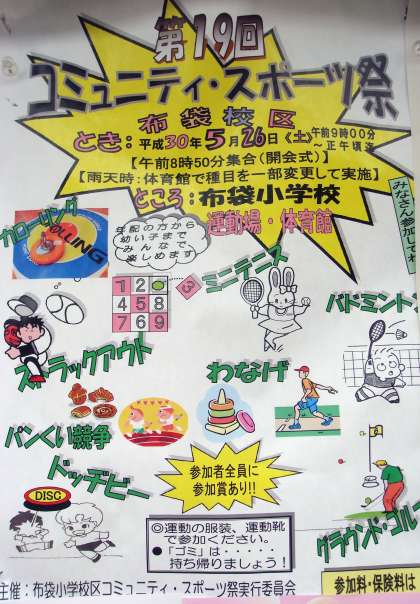 第19回
コミュニティ・スポーツ祭
布袋校区
とき：平成30年5月26日《土》午前9時00分
～正午頃迄
【午前8時50分集合（開会式）】
【雨天時：体育館で種目を一部変更して実施】
ところ：布袋小学校
運動場・体育館
みなさん参加してね
カローリング
年配の方から
幼い子まで
みんなで
楽しめます
1 2
3
4 5 8
7 6 9
ミニテニス
バドミント
ストラックアウト
わなげ
パンくい競争
ドッヂビー
DISC
参加者全員に
参加賞あり!!
グラウンド・ゴルフ
◎運動の服装、運動靴
で参加ください。
●「ゴミ」は・・・・・
持ち帰りましょう！
主催：布袋小学校区コミュニティ・スポーツ祭実行委員会
参加料・保険料は